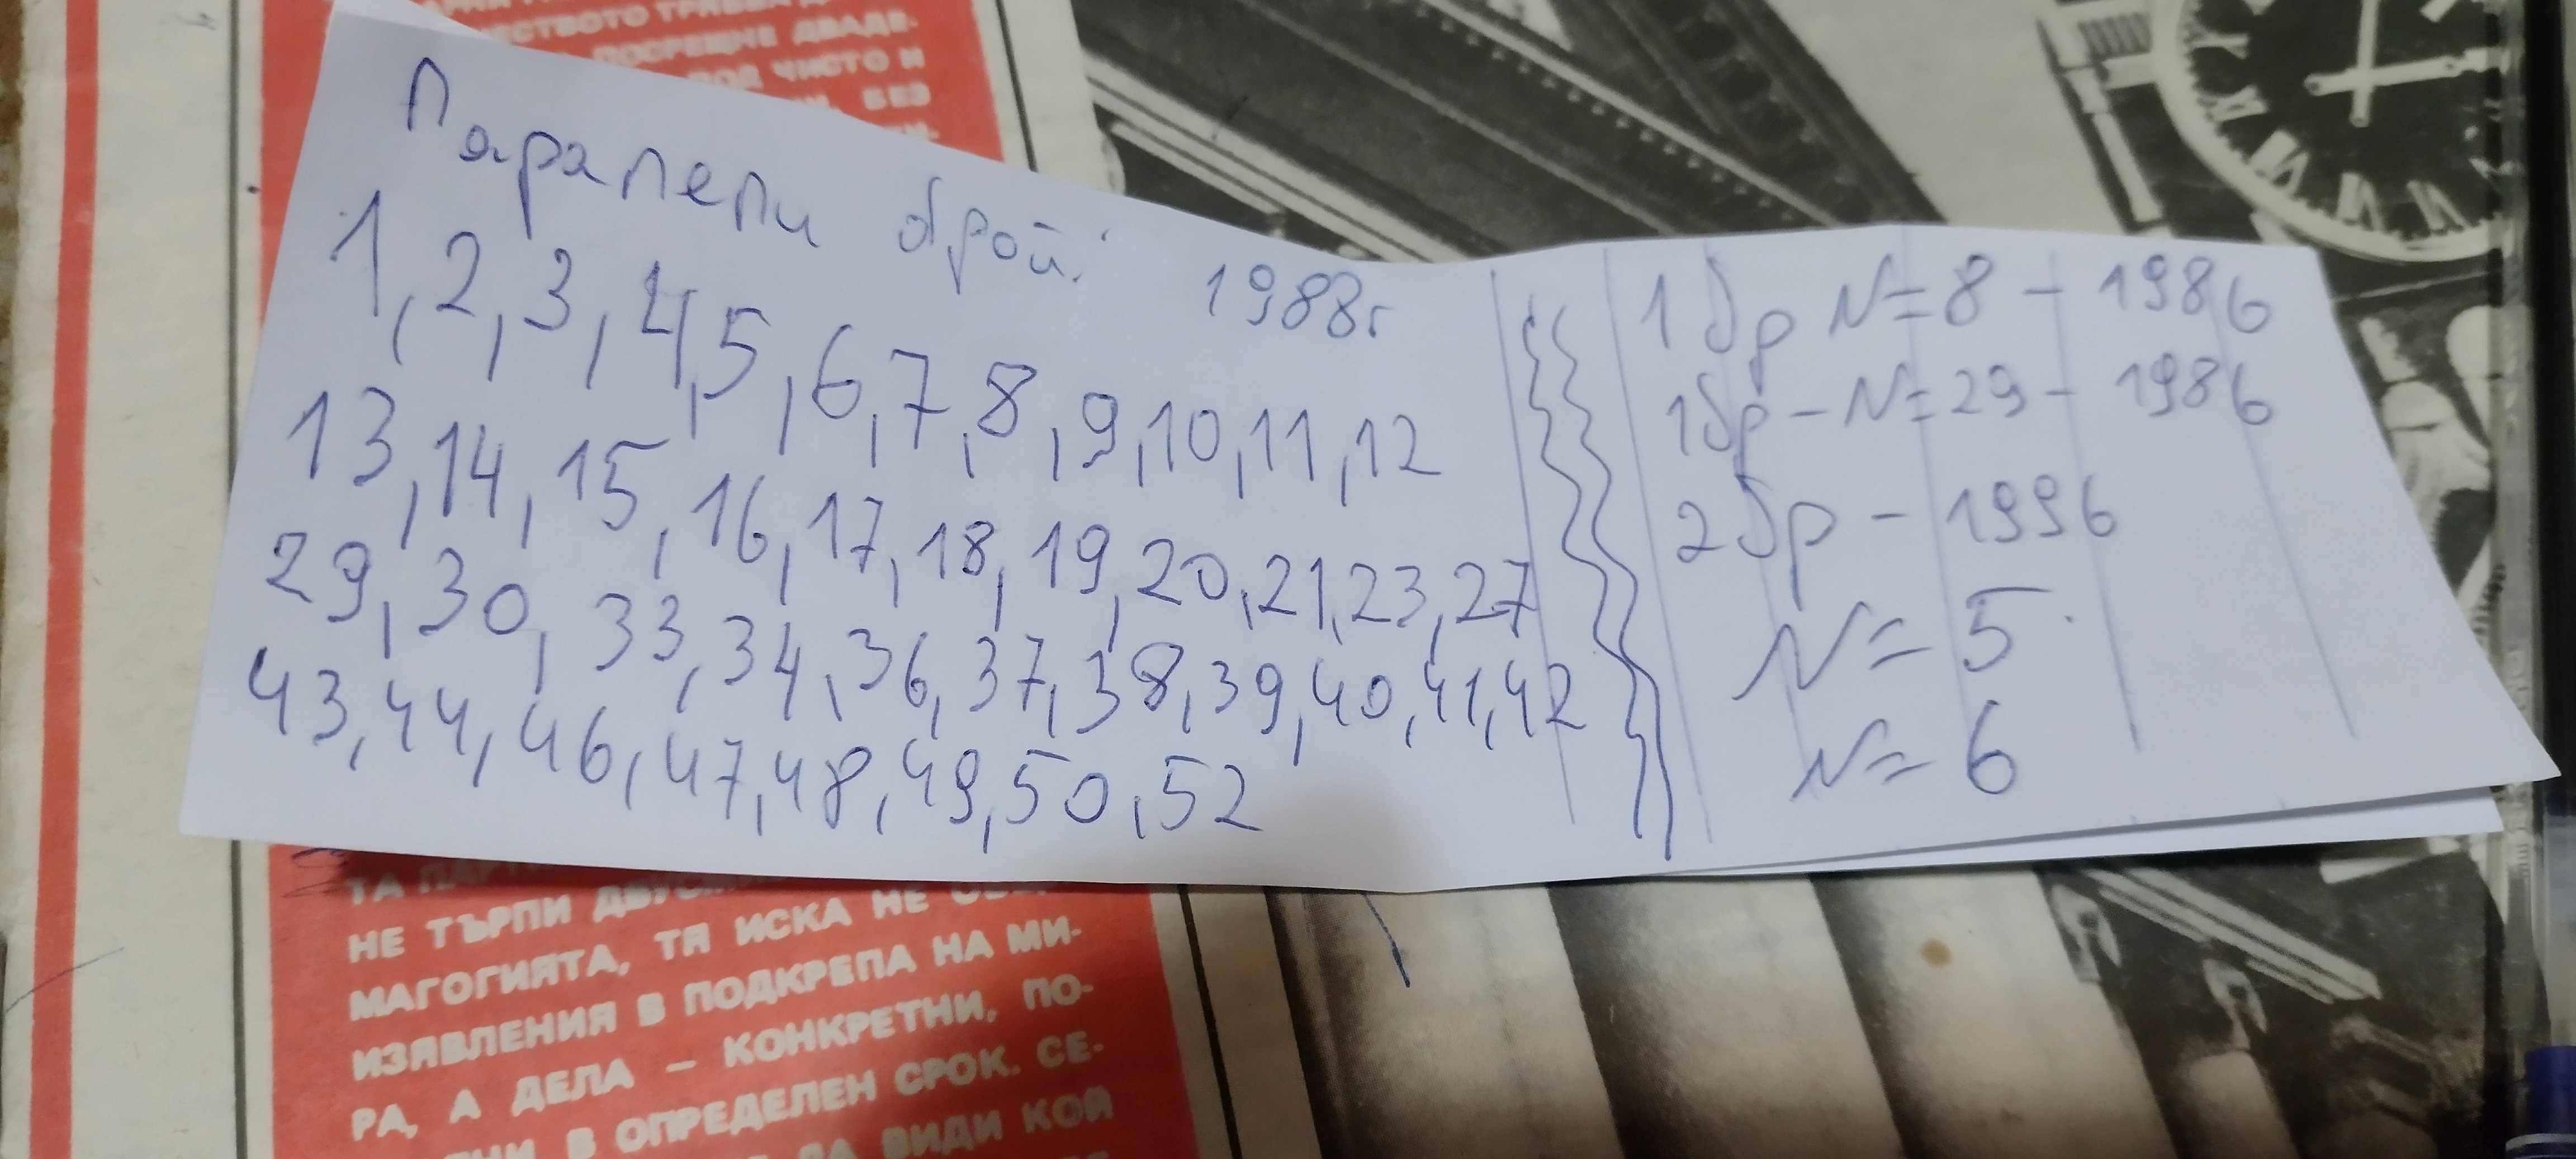 ЧЕСТВОТО ТРЯБВА
ПОСРЕЩНЕ ДВАДЕ-
ЧИСТО И
БЕЗ
Паралели брой: 1988г
1, 2, 3, 4, 5, 6, 7, 8, 9, 10, 11, 12
13, 14, 15, 16, 17, 18, 19, 20, 21, 23, 27
29, 30, 33, 34, 36, 37, 38, 39, 40, 41, 42
43, 44, 46, 47, 48, 49, 50, 52
1 бр N=8 - 1986
1бр - N=29 - 1986
2бр - 1996
N= 5
N= 6
НЕ ТЪРПИ
МАГОГИЯТА, ТЯ ИСКА НЕ
ИЗЯВЛЕНИЯ В ПОДКРЕПА НА МИ-
РА, А ДЕЛА – КОНКРЕТНИ, ПО-
В ОПРЕДЕЛЕН СРОК. СЕ-
ДА ВИДИ КОЙ